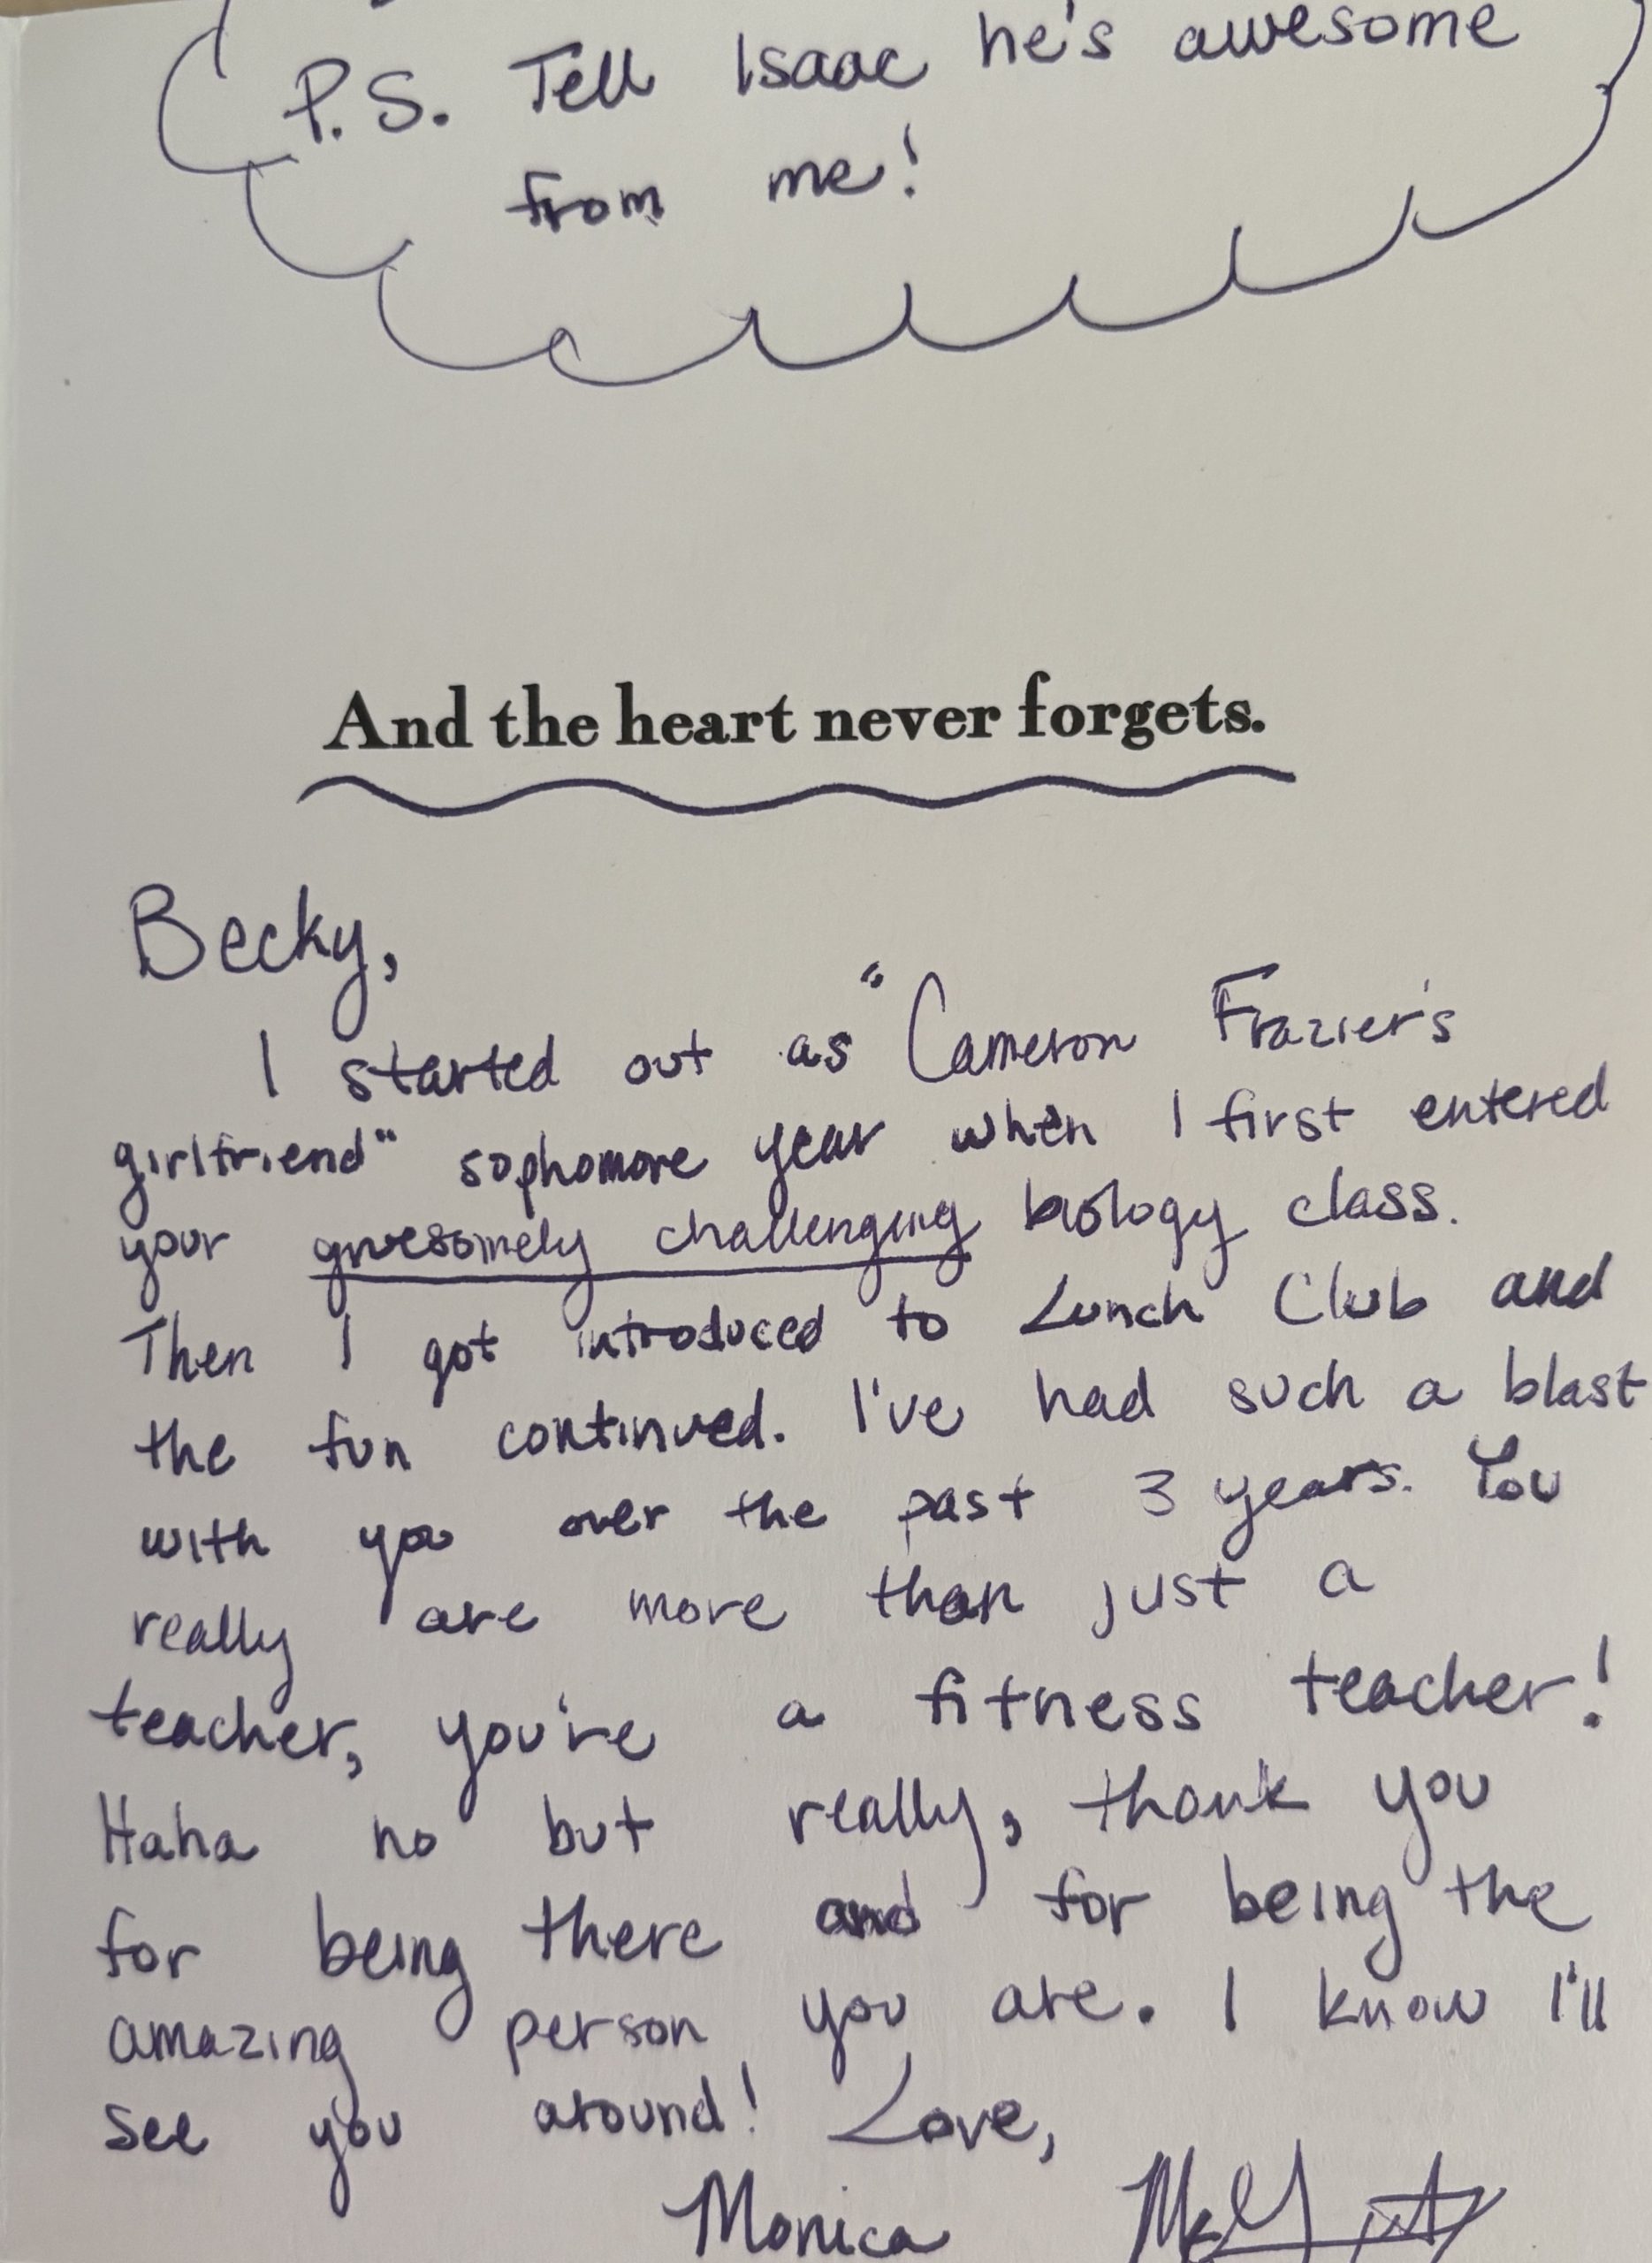 P.S. Tell Isaac he's awesome
from me!
And the heart never forgets.
Becky,
I started out as "Cameron Frazier's
girlfriend" sophomore year when I first entered
your gruesomely challenging biology class.
Then I got introduced to Lunch Club and
the fun continued. I've had such a blast
with you over the past 3 years. You
really are more than just a
teacher, you're a fitness teacher!
Haha no but really, thank you
for being there and for being the
amazing person you are. I know I'll
see you around! Love,
Monica